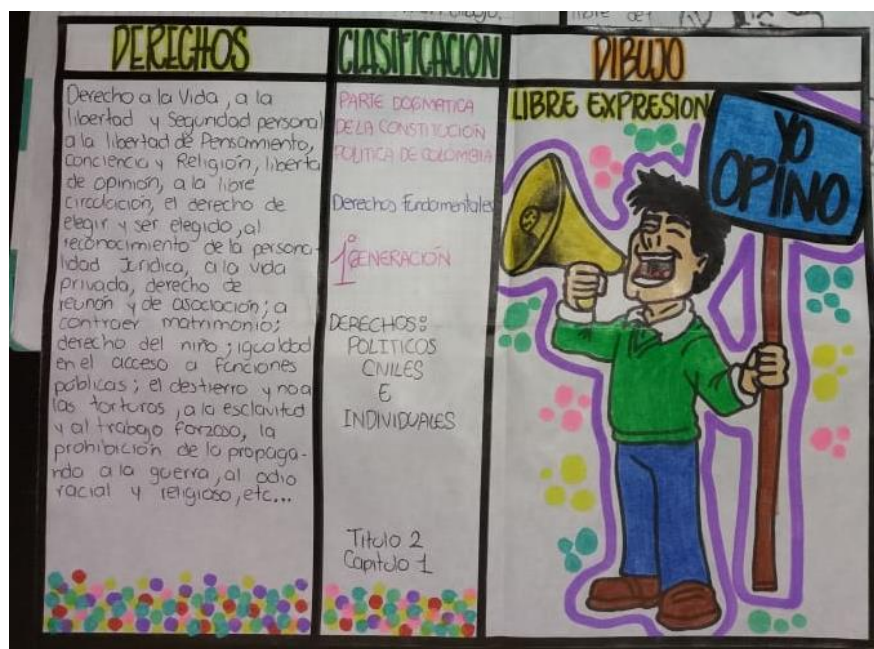 DERECHOS
Derecho a la Vida, a la
libertad y Seguridad personal
a la libertad de Pensamiento,
Conciencia y Religión, liberta
de opinión, a la libre
circulación, el derecho de
elegir y ser elegido, al
reconocimiento de la persona-
lidad Juridica, a la vida
privada, derecho de
reunón y de asociación; a
contraer matrimonio;
derecho del niño; igualdad
en el acceso a funciones
públicas; el destierro y no a
las torturas, a la esclavitud
y al trabajo forzoso, la
prohibición de la propaga-
nda a la guerra, al odio
racial y religioso, etc...
CLASIFICACION
PARTE DOGMATICA
DE LA CONSTITUCIÓN
POLITICA DE COLOMBIA
Derechos Fundamentales
1° GENERACIÓN
DERECHOS:
POLITICOS
CIVILES
E
INDIVIDUALES
Titulo 2
Capitulo 1
DIBUJO
LIBRE EXPRESION
YO
OPINO